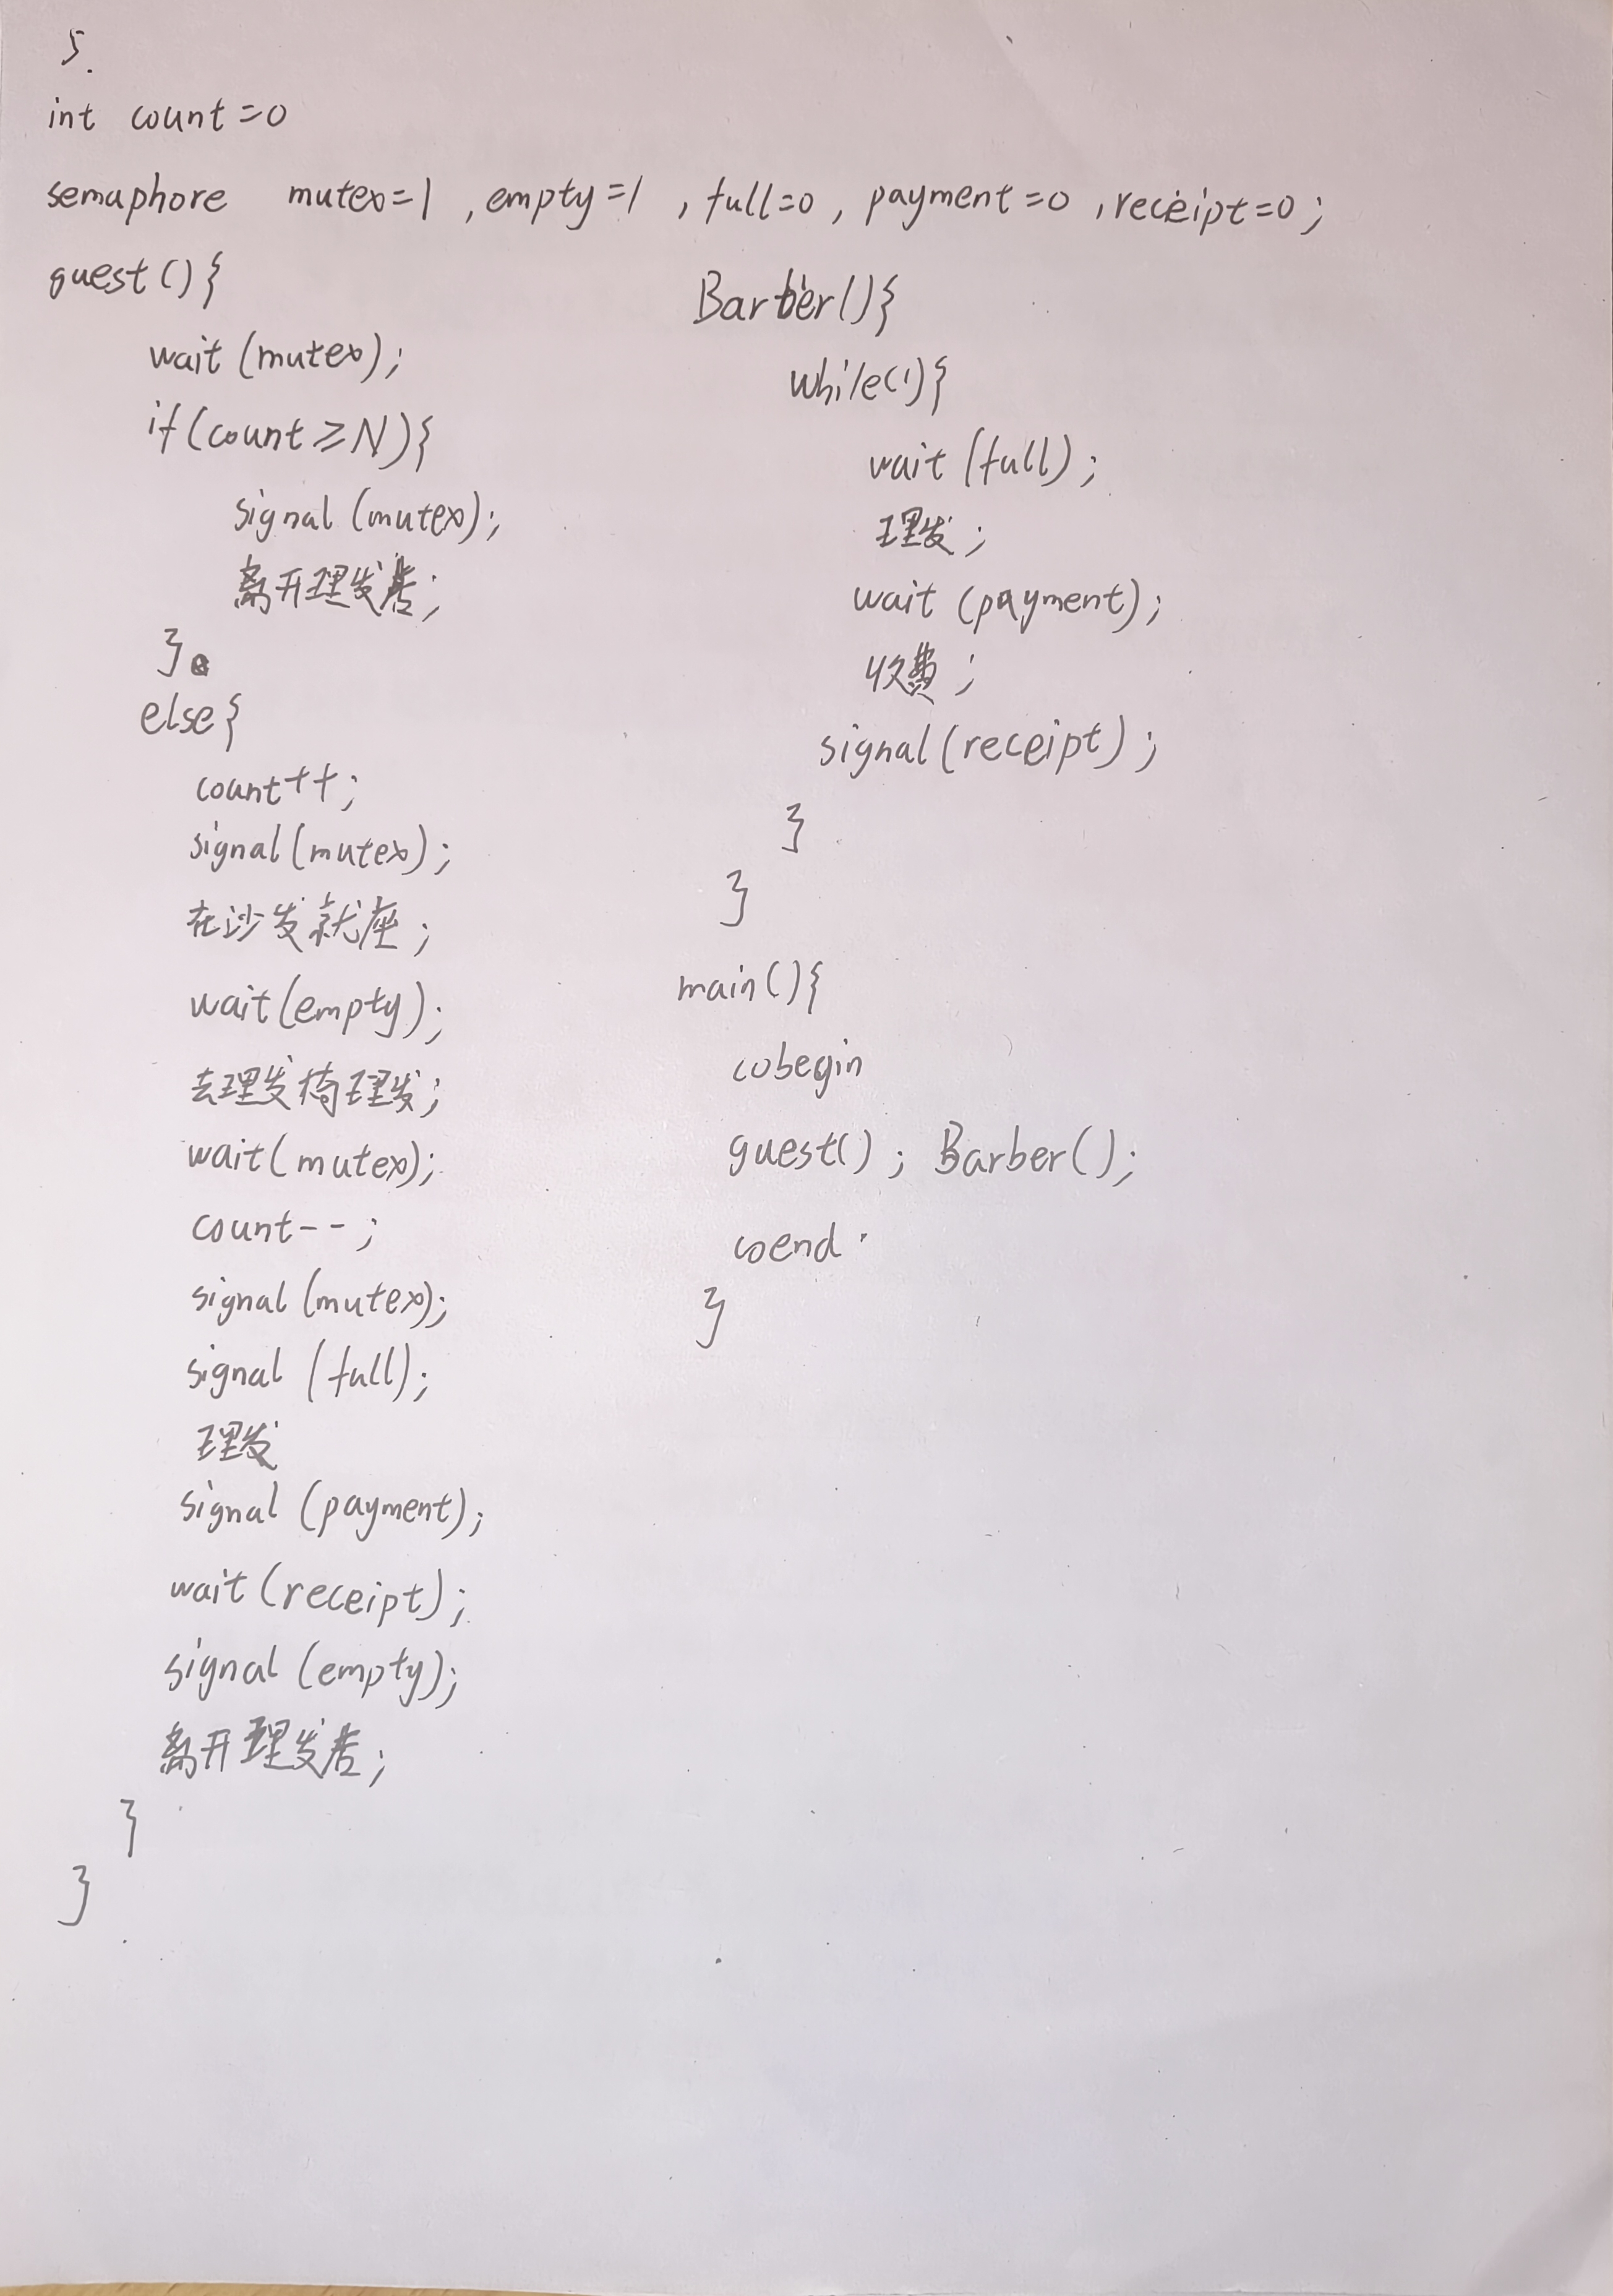 5.
int count=0
semaphore mutex=1 , empty=1 , full=0 , payment=0 , receipt=0 ;
guest(){
wait(mutex);
if(count≥N){
signal(mutex);
离开理发店;
}
else{
count++;
signal(mutex);
在沙发就座;
wait(empty);
去理发椅理发;
wait(mutex);
count--;
signal(mutex);
signal(full);
理发
signal(payment);
wait(receipt);
signal(empty);
离开理发店;
}
}
Barber(){
while(1){
wait(full);
理发;
wait(payment);
收费;
signal(receipt);
}
}
main(){
cobegin
guest(); Barber();
coend
}